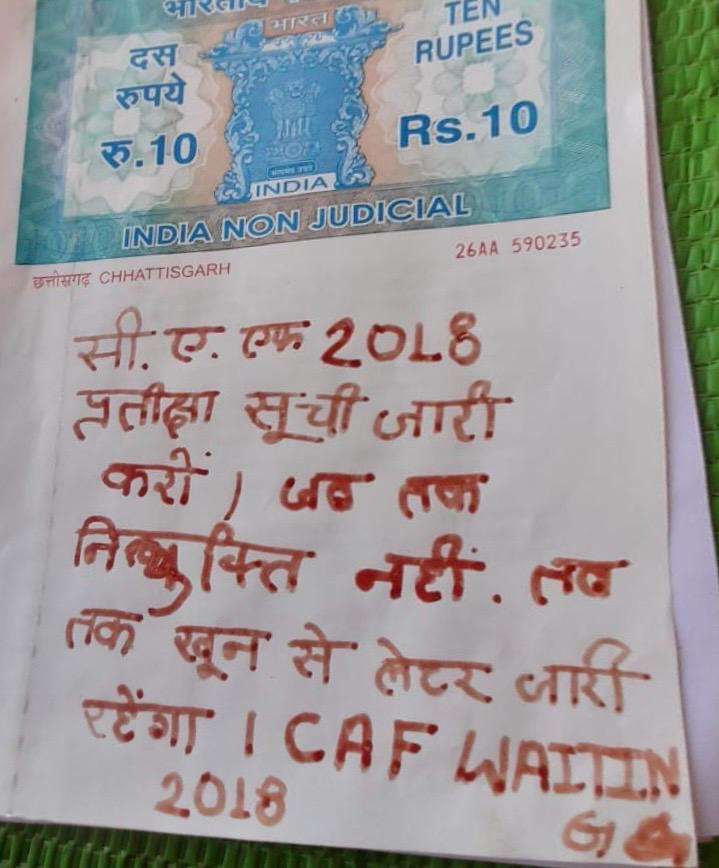 भारतीय
भारत
TEN
RUPEES
दस
रुपये
रु.10
Rs.10
सत्यमेव जयते
INDIA
INDIA NON JUDICIAL
छत्तीसगढ़ CHHATTISGARH
26AA 590235
सी. ए. एफ 2018
प्रतीक्षा सूची जारी
करों । जब तक
नियुक्ति नहीं. तब
तक खून से लेटर जारी
रहेंगा । CAF WAITIN
2018